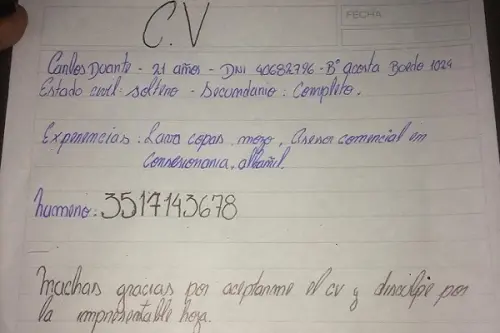 C.V
FECHA
Carlos Duarte - 21 años - DNI 40682796 - Bº acosta Boedo 1024
Estado civil: soltero - Secundario: Completo.
Experiencias: Lava copas, mozo, Asesor comercial en
Consesionaria, albañil.
numero: 3517143678
Muchas gracias por aceptarme el cv y disculpe por
la impresentable hoja.